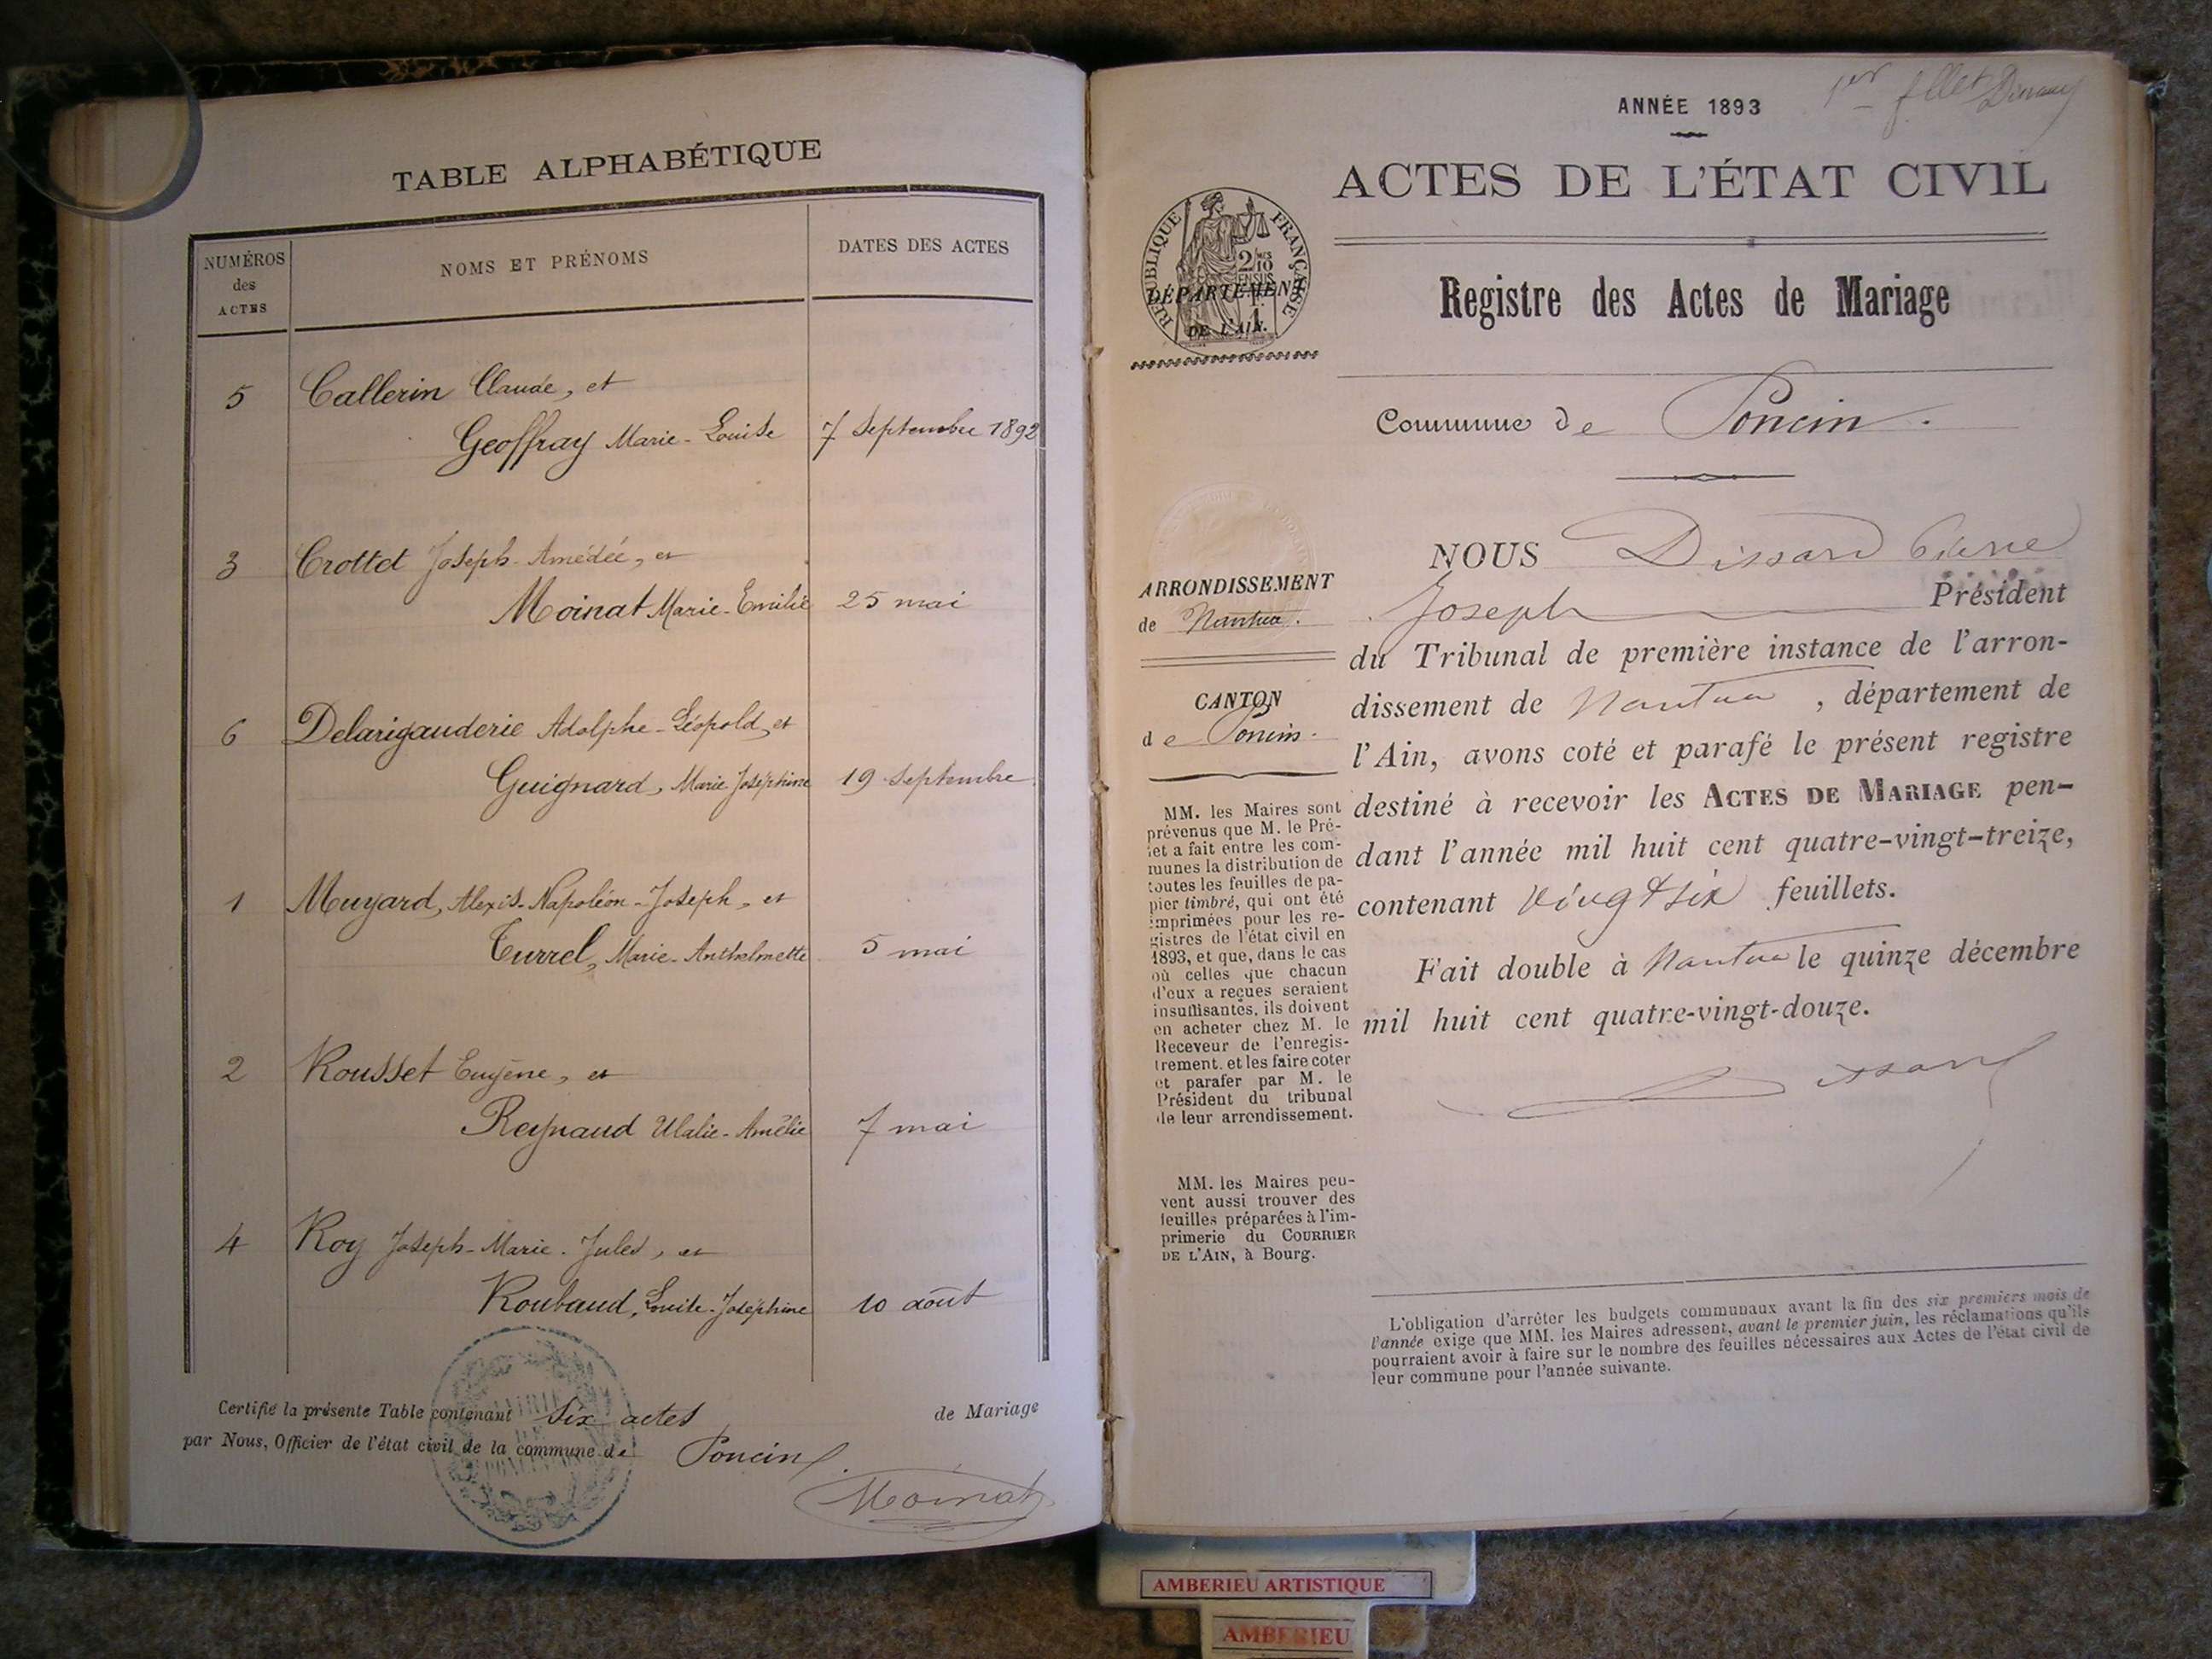 TABLE ALPHABÉTIQUE
NUMÉROS
des
ACTES
NOMS ET PRÉNOMS
DATES DES ACTES
5 Callerin Claude, et
Geoffray Marie-Louise 7 Septembre 1892
3 Crottet Joseph-Amédée, et
Moinat Marie-Emilie 25 mai
6 Delarigauderie Adolphe-Léopold, et
Guignard, Marie Joséphine 19 Septembre
1 Muyard, Alexis-Napoléon-Joseph, et
Turrel, Marie-Anthelmette 5 mai
2 Rousset Eugène, et
Reynaud Ulalie-Amélie 7 mai
4 Roy Joseph-Marie-Jules, et
Roubaud, Louise-Joséphine 10 août
Certifié la présente Table contenant Six actes de Mariage
par Nous, Officier de l'état civil de la commune de Poncin.
Moinat
1er
ANNÉE 1893
ACTES DE L'ÉTAT CIVIL
RÉPUBLIQUE FRANÇAISE
DÉPARTEMENT
DE L'AIN.
Registre des Actes de Mariage
Commune de Poncin.
ARRONDISSEMENT
de Nantua.
CANTON
de Poncin.
MM. les Maires sont
prévenus que M. le Pré-
fet a fait entre les com-
munes la distribution de
toutes les feuilles de pa-
pier timbré, qui ont été
imprimées pour les re-
gistres de l'état civil en
1893, et que, dans le cas
où celles que chacun
d'eux a reçues seraient
insuffisantes, ils doivent
en acheter chez M. le
Receveur de l'enregis-
trement. et les faire coter
et parafer par M. le
Président du tribunal
de leur arrondissement.
MM. les Maires peu-
vent aussi trouver des
feuilles préparées à l'im-
primerie du COURRIER
DE L'AIN, à Bourg.
NOUS Dissard
Joseph Président
du Tribunal de première instance de l'arron-
dissement de Nantua, département de
l'Ain, avons coté et parafé le présent registre
destiné à recevoir les ACTES DE MARIAGE pen-
dant l'année mil huit cent quatre-vingt-treize,
contenant vingt six feuillets.
Fait double à Nantua le quinze décembre
mil huit cent quatre-vingt-douze.
Dissard
L'obligation d'arrêter les budgets communaux avant la fin des six premiers mois de
l'année exige que MM. les Maires adressent, avant le premier juin, les réclamations qu'ils
pourraient avoir à faire sur le nombre des feuilles nécessaires aux Actes de l'état civil de
leur commune pour l'année suivante.
AMBERIEU ARTISTIQUE
AMBERIEU